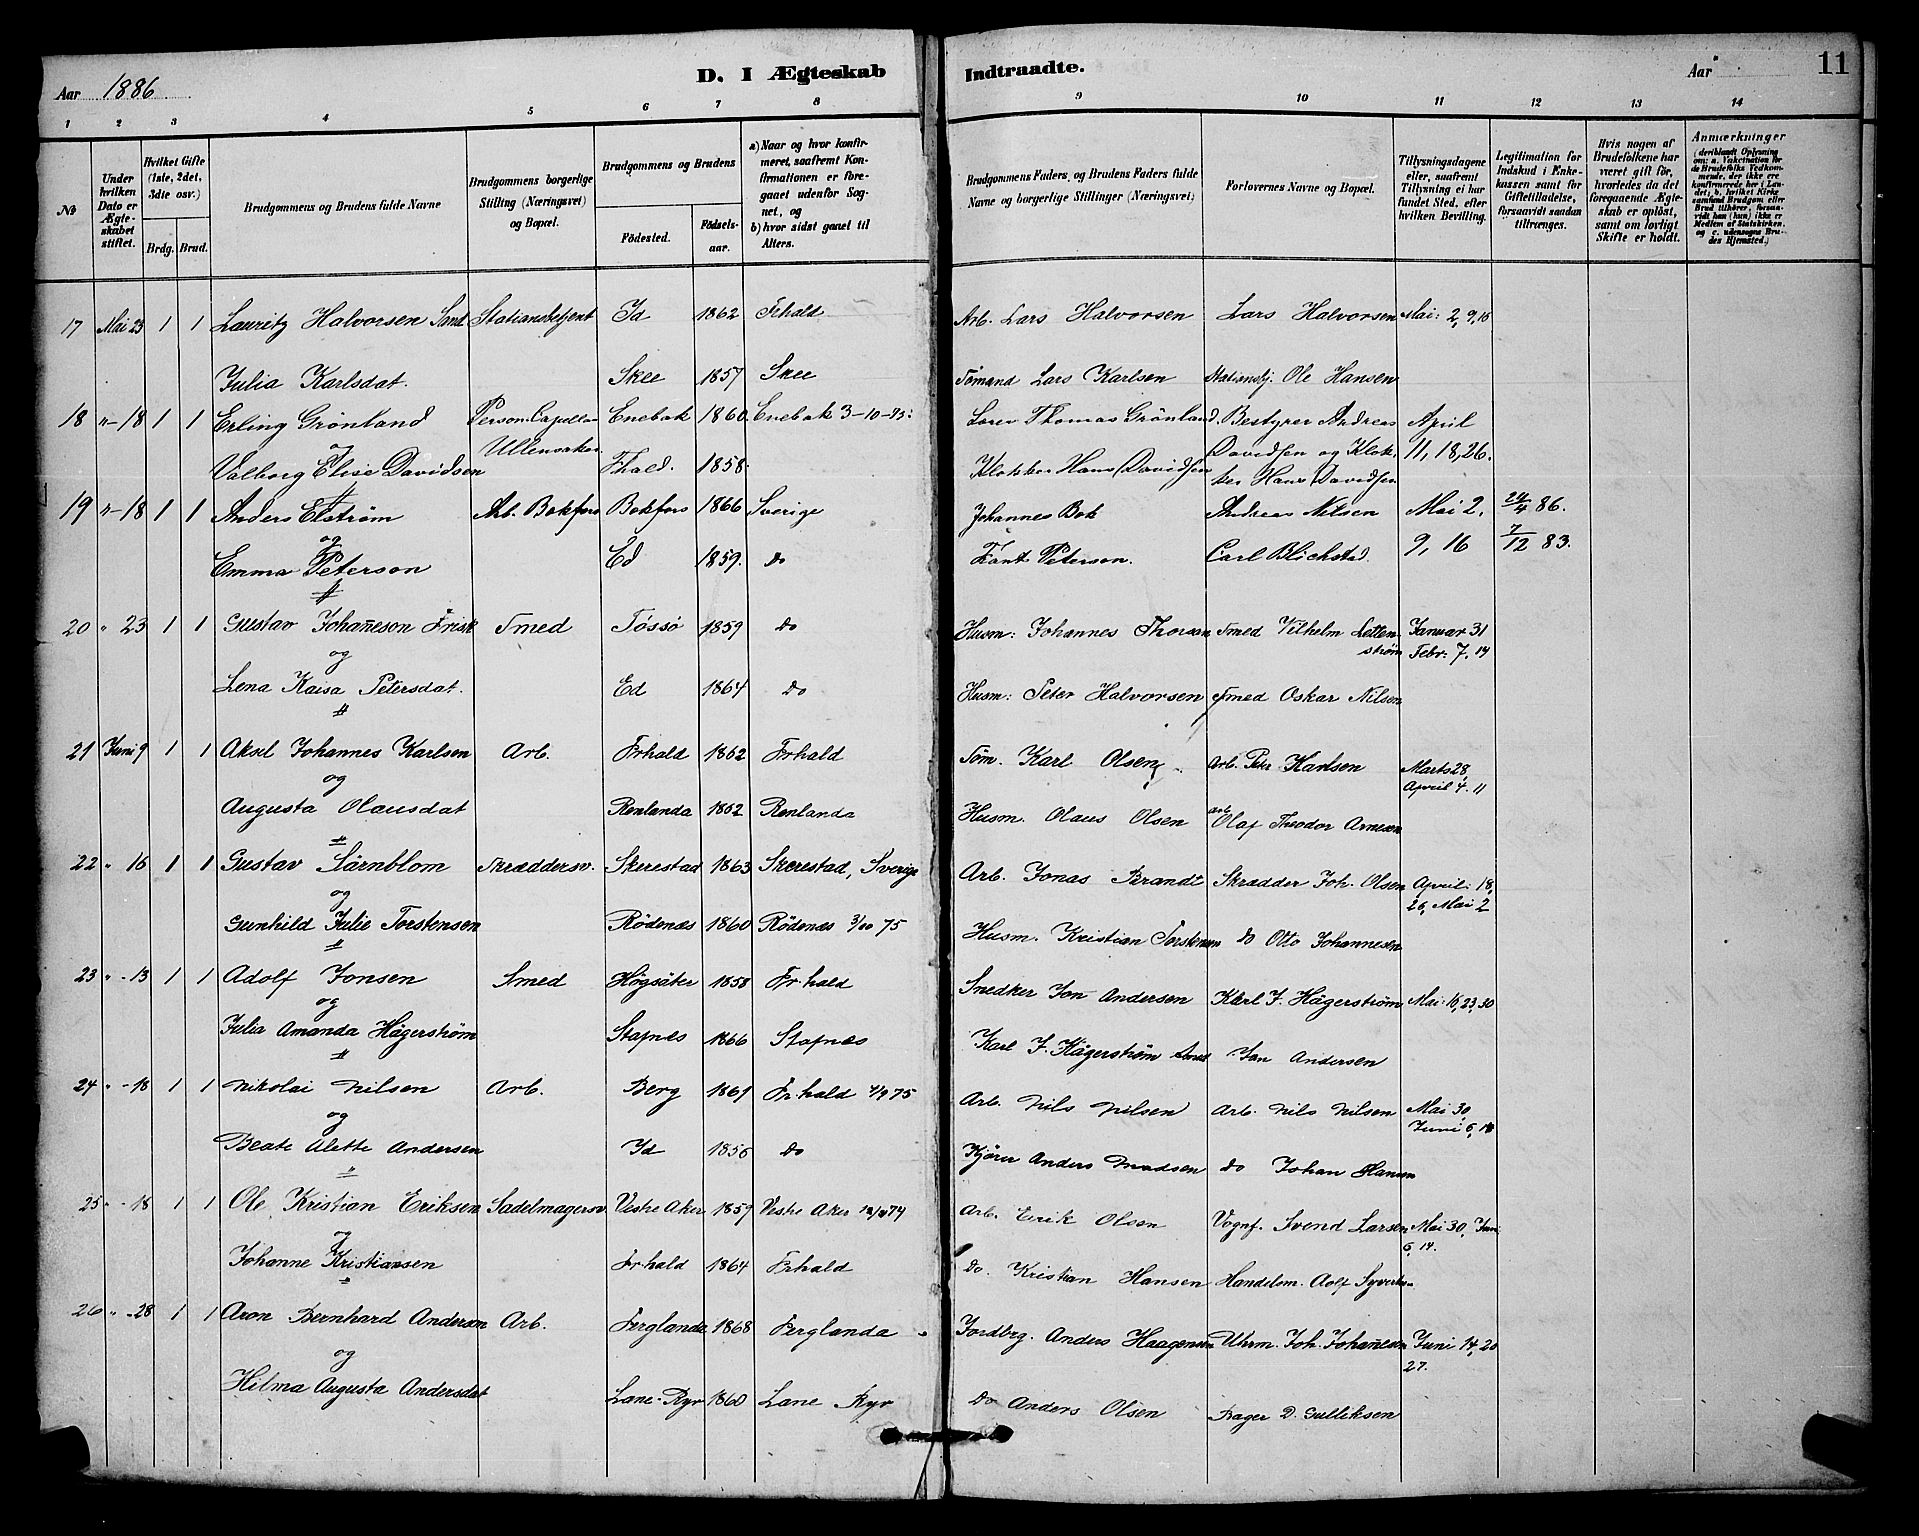 Aar 1886
D. I Ægteskab
Indtraadte.
Aar
11
1 2 3 4 5 6 7 8 9 10 11 12 13 14
№
Under hvilken Dato er Ægteskabet stiftet.
Hvilket Gifte (1ste, 2det, 3dte osv.)
Brdg. Brud.
Brudgommens og Brudens fulde Navne
Brudgommens borgerlige Stilling (Næringsvei) og Bopæl.
Brudgommens og Brudens
Fødested.
Fødsels-aar.
a) Naar og hvor konfirmeret, saafremt Konfirmationen er foregaaet udenfor Sognet, og
b) hvor sidst gaaet til Alters.
Brudgommens Faders, og Brudens Faders fulde Navne og borgerlige Stillinger (Næringsvei)
Forlovernes Navne og Bopæl.
Tillysningsdagene eller, saafremt Tillysning ei har fundet Sted, efter hvilken Bevilling.
Legitimation for Indskud i Enkekassen samt for Giftetilladelse, forsaavidt saadan tiltrænges.
Hvis nogen af Brudefolkene har været gift før, hvorledes da det foregaaende Ægteskab er opløst, samt om lovligt Skifte er holdt.
Anmærkninger (deriblandt Oplysning om: a. Vakcination for de Brudefolks Vedkommende, der ikke ere konfirmerede her i Landet, b. hvilket Kirkesamfund Brudgom eller Brud tilhører, forsaavidt han (hun) ikke er Medlem af Statskirken, og c. udensogns Brudes Hjemsted.)
17 Mai 23 1 1 Lauritz Halvorsen Sand Stationsbetjent Id 1862 Frhald Arb. Lars Halvorsen Lars Halvorsen Mai: 2, 9, 16
Julia Karlsdat. Skee 1857 Skee Tømand Lars Karlsen Stationsbj. Ole Hansen
18 "-18 1 1 Erling Grönland Person. Capellan Enebak 1860 Enebak 3-10-75: Thomas Grönland, Bestyrer Andreas April
og Ullensaker Davidsen og Klok- 11, 18, 26.
Valborg Elise Davidsen Fhald. 1858. Klokker Hans Davidsen ker Hans Davidsen
19 "-18 1 1 Anders Elström Arb. Bokfors Bokfors 1866 Sverige Johannes Bok Andreas Nilsen Mai 2, 24/4 86.
og
Emma Peterson Ed 1859. Do Fant Peterson. Carl Blichstad. 9, 16 7/12 83.
20 " 23 1 1 Gustav Johaneson Frisk Smed Tössö 1859 Do Husm: Johannes Thorsen Smed Vilhelm Letten- Januar 31
og strøm Febr: 7, 14
Lena Kaisa Petersdat. Ed 1864 Do Husm: Peter Halvorsen Smed Oskar Nilsen
21 Juni 9 1 1 Aksel Johannes Karlsen Arb. Frhald 1862 Frhald Tøm. Karl Olsen Arb. Peter Karlsen Marts 28,
og April 4. 11
Augusta Olausdat Renlanda 1852 Renlanda Husm. Olaus Olsen Arb Olaf Theodor Arnesen
22 " 16 1 1 Gustav Sörnblom Skræddersv. Skerestad 1863 Skerestad, Sverige Arb. Jonas Brandt Skrædder Joh. Olsen April: 18,
og 26, Mai 2
Gunhild Julie Torstensen Rödenæs 1860 Rödenæs 3/10 75 Husm. Kristian Torstensen do Otto Johannesen
23 "-13 1 1 Adolf Jonsen Smed Högsäter 1858 Fr.hald Snedker Jon Andersen Karl J. Hägerstrøm Mai: 16, 23, 30
og
Julia Amanda Hägerstrøm Stafnæs 1866 Stafnæs Karl J. Hägerstrøm Smed Jon Andersen
24 "-18 1 1 Nikolai Nilsen Arb. Berg 1861 Fr.hald 4/9 75 Arb. Nils Nilsen Arb. Nils Nilsen Mai 30,
og Juni 6, 14
Beate Alette Andersen Id 1856 Do Kjører Anders Madsen do Johan Hansen
25 "-18 1 1 Ole Kristian Eriksen Sadelmagersv. Vestre Aker 1859 Vestre Aker 74 Arb. Erik Olsen Vognf. Svend Larsen Mai 30, Juni
og 6, 14.
Johanne Kristiansen Frhald 1864 Frhald Do. Kristian Hansen Handelsm. Adolf Syverts-
26 "-28 1 1 Aron Bernhard Andersen Arb. Ferglanda 1868 Ferglanda Jordbrg. Anders Haagensen Uhrm. Joh. Johanesen Juni 14, 20
og 27.
Hilma Augusta Andersdat Lane-Ryr 1860 Lane Ryr Do Anders Olsen Bager D. Gulleksen